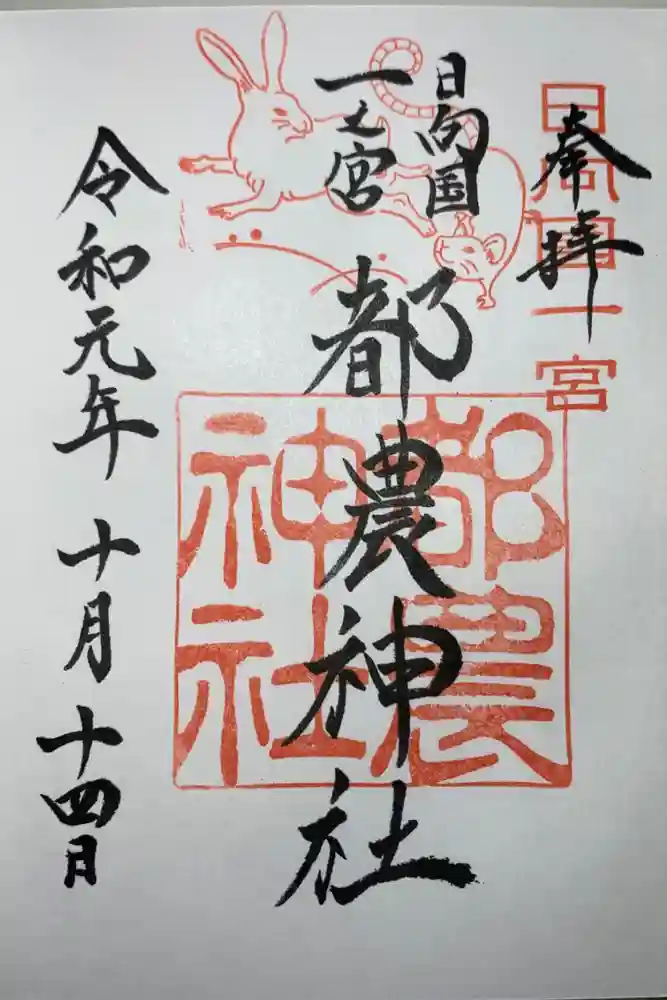 奉拝
日向国一宮
日向国
一之宮
都農神社
都農
神社
令和元年 十月 十四日